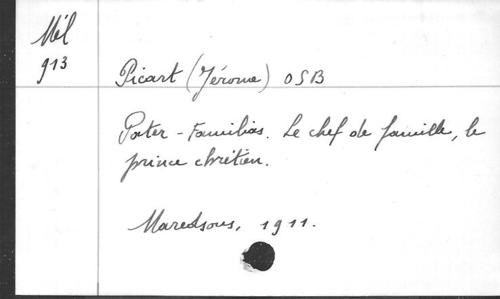 Mél
913
Picart (Jérome) OSB
Pater - Familias. Le chef de famille, le
prince chrétien.
Maredsous, 1911.